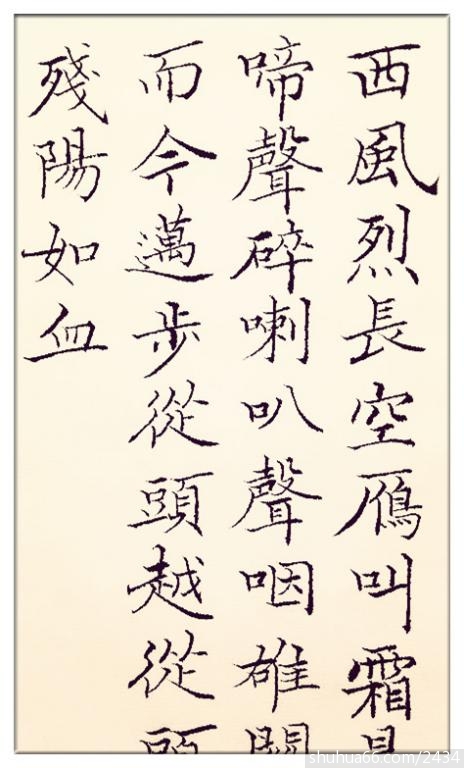 西風烈長空鴈叫霜
啼聲碎喇叭聲咽雄
而今邁步從頭越從
殘陽如血
shuhua66.com/2434